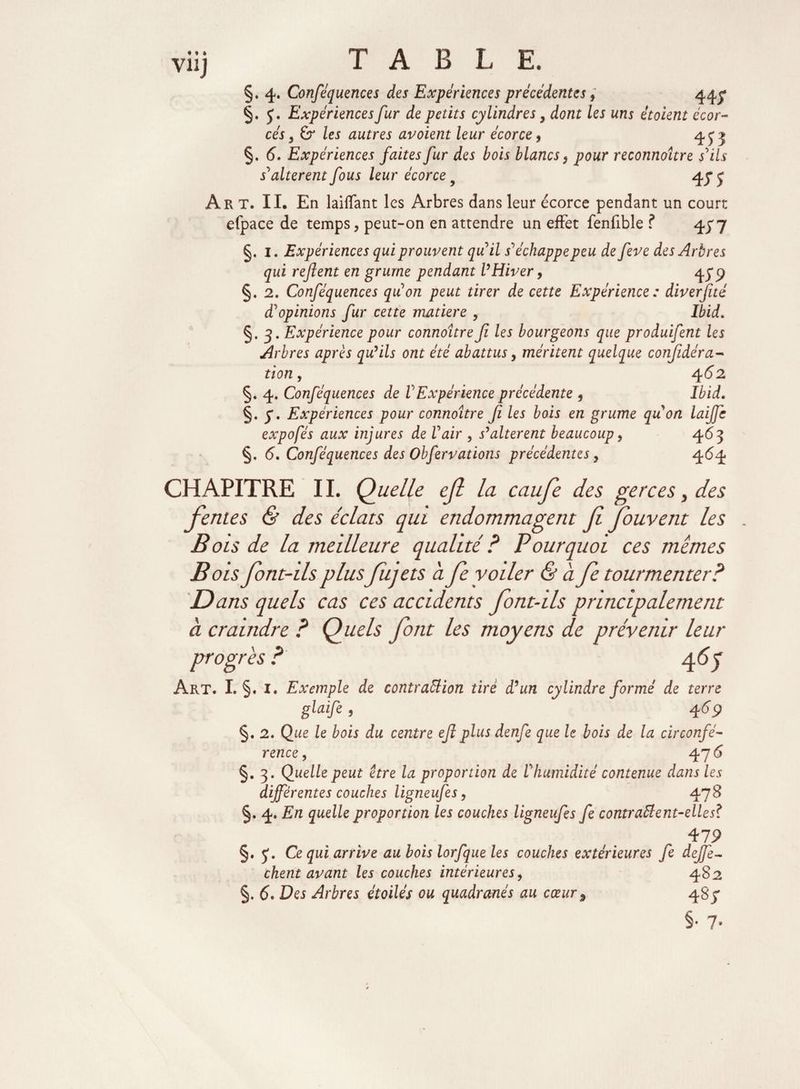 viij TABLE.
§. 4. Conſéquences des Expériences précédentes, 445
§. 5. Expériences ſur de petits cylindres, dont les uns étoient écor-
cés, & les autres avoient leur écorce, 453
§. 6. Expériences faites ſur des bois blancs, pour reconnoître s'ils
s'alterent ſous leur écorce, 455
ART. II. En laiſſant les Arbres dans leur écorce pendant un court
eſpace de temps, peut-on en attendre un effet ſenſible? 457
§. 1. Expériences qui prouvent qu'il s'échappe peu de ſeve des Arbres
qui reſtent en grume pendant l'Hiver, 459
§. 2. Conſéquences qu'on peut tirer de cette Expérience: diverſité
d'opinions ſur cette matiere, Ibid.
§. 3. Expérience pour connoître ſi les bourgeons que produiſent les
Arbres après qu'ils ont été abattus, méritent quelque conſidéra-
tion, 462
§. 4. Conſéquences de l'Expérience précédente, Ibid.
§. 5. Expériences pour connoître ſi les bois en grume qu'on laiſſe
expoſés aux injures de l'air, s'alterent beaucoup, 463
§. 6. Conſéquences des Obſervations précédentes, 464
CHAPITRE II. Quelle eſt la cauſe des gerces, des
fentes & des éclats qui endommagent ſi ſouvent les
Bois de la meilleure qualité? Pourquoi ces mêmes
Bois ſont-ils plus ſujets à ſe voiler & à ſe tourmenter?
Dans quels cas ces accidents ſont-ils principalement
à craindre? Quels ſont les moyens de prévenir leur
progrès? 465
ART. I. §. 1. Exemple de contraction tiré d'un cylindre formé de terre
glaiſe, 469
§. 2. Que le bois du centre eſt plus denſe que le bois de la circonfé-
rence, 476
§. 3. Quelle peut être la proportion de l'humidité contenue dans les
différentes couches ligneuſes, 478
§. 4. En quelle proportion les couches ligneuſes ſe contractent-elles?
479
§. 5. Ce qui arrive au bois lorſque les couches extérieures ſe deſſe-
chent avant les couches intérieures, 482
§. 6. Des Arbres étoilés ou quadranés au cœur, 485
§. 7.